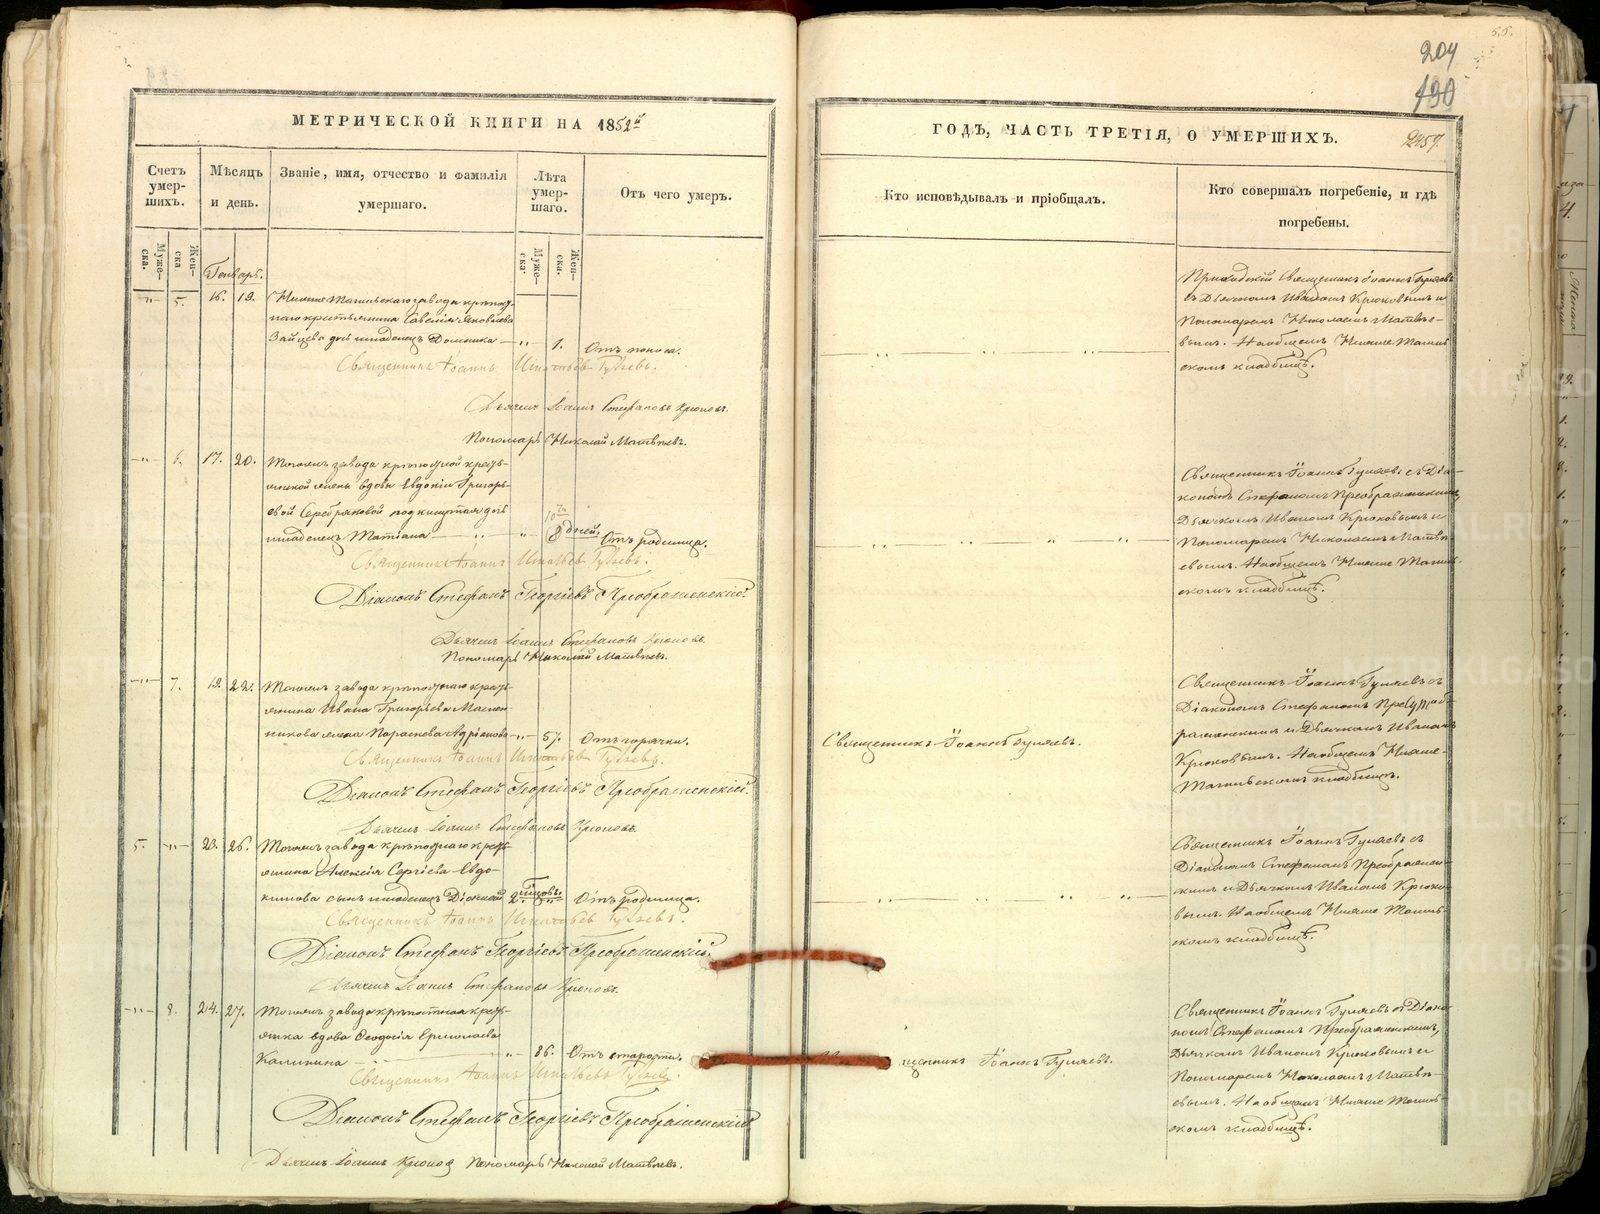 55.
204
190
МЕТРИЧЕСКОЙ КНИГИ НА 1852й
Счетъ умер-
шихъ.
Муже-
ска.
Жен-
ска
Мѣсяцъ
и день.
Званіе, имя, отчество и фамилія
умершаго.
Лѣта
умер-
шаго.
Муже-
ска.
Жен-
ска.
Отъ чего умеръ.
Генварь.
-"- 5. 16. 19. Нижне Тагильскаго завода крѣпост-
наго крестьянина Савелія Яковлева
Зайцева дочь младенецъ Домника - " - 1. Отъ поноса.
Священникъ Іоаннъ Игнатьевъ Гуляевъ.
Дьячекъ Іоаннъ Стефановъ Крюковъ.
Пономарь Николай Матвѣевъ.
-"- 6. 17. 20. Тогожъ завода крѣпостной кресть-
янской жены вдовы Евдокіи Григорь-
евой Серебряковой подкинутая дочь
младенецъ Татіана - " - " 8 дней. Отъ родимца.
Священникъ Іоаннъ Игнатьевъ Гуляевъ.
Діаконъ Стефанъ Георгіевъ Преображенскій.
Дьячекъ Іоаннъ Стефановъ Крюковъ.
Пономарь Николай Матвѣевъ.
-"- 7. 19. 22. Тогожъ завода крѣпостнаго кресть-
янина Ивана Григорьева Маслен-
никова жена Параскева Адріанова - " - 57. Отъ горячки.
Священникъ Іоаннъ Игнатьевъ Гуляевъ.
Діаконъ Стефанъ Георгіевъ Преображенскій.
Дьячекъ Іоаннъ Стефановъ Крюковъ.
5. -"- 23. 26. Тогожъ завода крѣпостнаго кресть-
янина Алексія Сергіева Евдо-
кимова сынъ младенецъ 2 Отъ родимца.
Священникъ Іоаннъ Игнатьевъ Гуляевъ.
Діаконъ Стефанъ Георгіевъ Преображенскій.
Дьячекъ Іоаннъ Стефановъ Крюковъ.
-"- 8. 24. 27. Тогожъ завода крѣпостная кресть-
янка вдова Ѳеодосія Ермолаева
Калинина - " - 86. Отъ старости.
Священникъ Іоаннъ Игнатьевъ Гуляевъ.
Діаконъ Стефанъ Георгіевъ Преображенскій
Дьячекъ Іоаннъ Крюковъ Пономарь Николай Матвѣевъ.
ГОДЪ, ЧАСТЬ ТРЕТІЯ, О УМЕРШИХЪ.
2457.
Кто исповѣдывалъ и пріобщалъ.
Кто совершалъ погребеніе, и гдѣ
погребены.
Приходскій Священникъ Іоаннъ Гуляевъ
съ Дьячкомъ Иваномъ Крюковымъ и
Пономаремъ Николаемъ Матвѣе-
вымъ. На общемъ Нижне Тагиль-
скомъ кладбищѣ.
Священникъ Іоаннъ Гуляевъ съ Діа-
кономъ Стефаномъ Преображенскимъ,
Дьячкомъ Иваномъ Крюковымъ и
Пономаремъ Николаемъ Матвѣ-
евымъ. На общемъ Нижне Тагиль-
скомъ кладбищѣ.
Священникъ Іоаннъ Гуляевъ.
Священникъ Іоаннъ Гуляевъ съ
Діакономъ Стефаномъ Преоб-
раженскимъ и Дьячкомъ Иваномъ
Крюковымъ. На общемъ Нижне-
Тагильскомъ кладбищѣ.
Священникъ Іоаннъ Гуляевъ съ
Діакономъ Стефаномъ Преображен-
скимъ и Дьячкомъ Иваномъ Крюко-
вымъ. На общемъ Нижне Тагиль-
скомъ кладбищѣ.
щенникъ Іоаннъ Гуляевъ.
Священникъ Іоаннъ Гуляевъ съ Діако-
номъ Стефаномъ Преображенскимъ,
Дьячкомъ Иваномъ Крюковымъ и
Пономаремъ Николаемъ Матвѣ-
евымъ. На общемъ Нижне Тагиль-
скомъ кладбищѣ.
METRIKI.GASO-URAL.RU